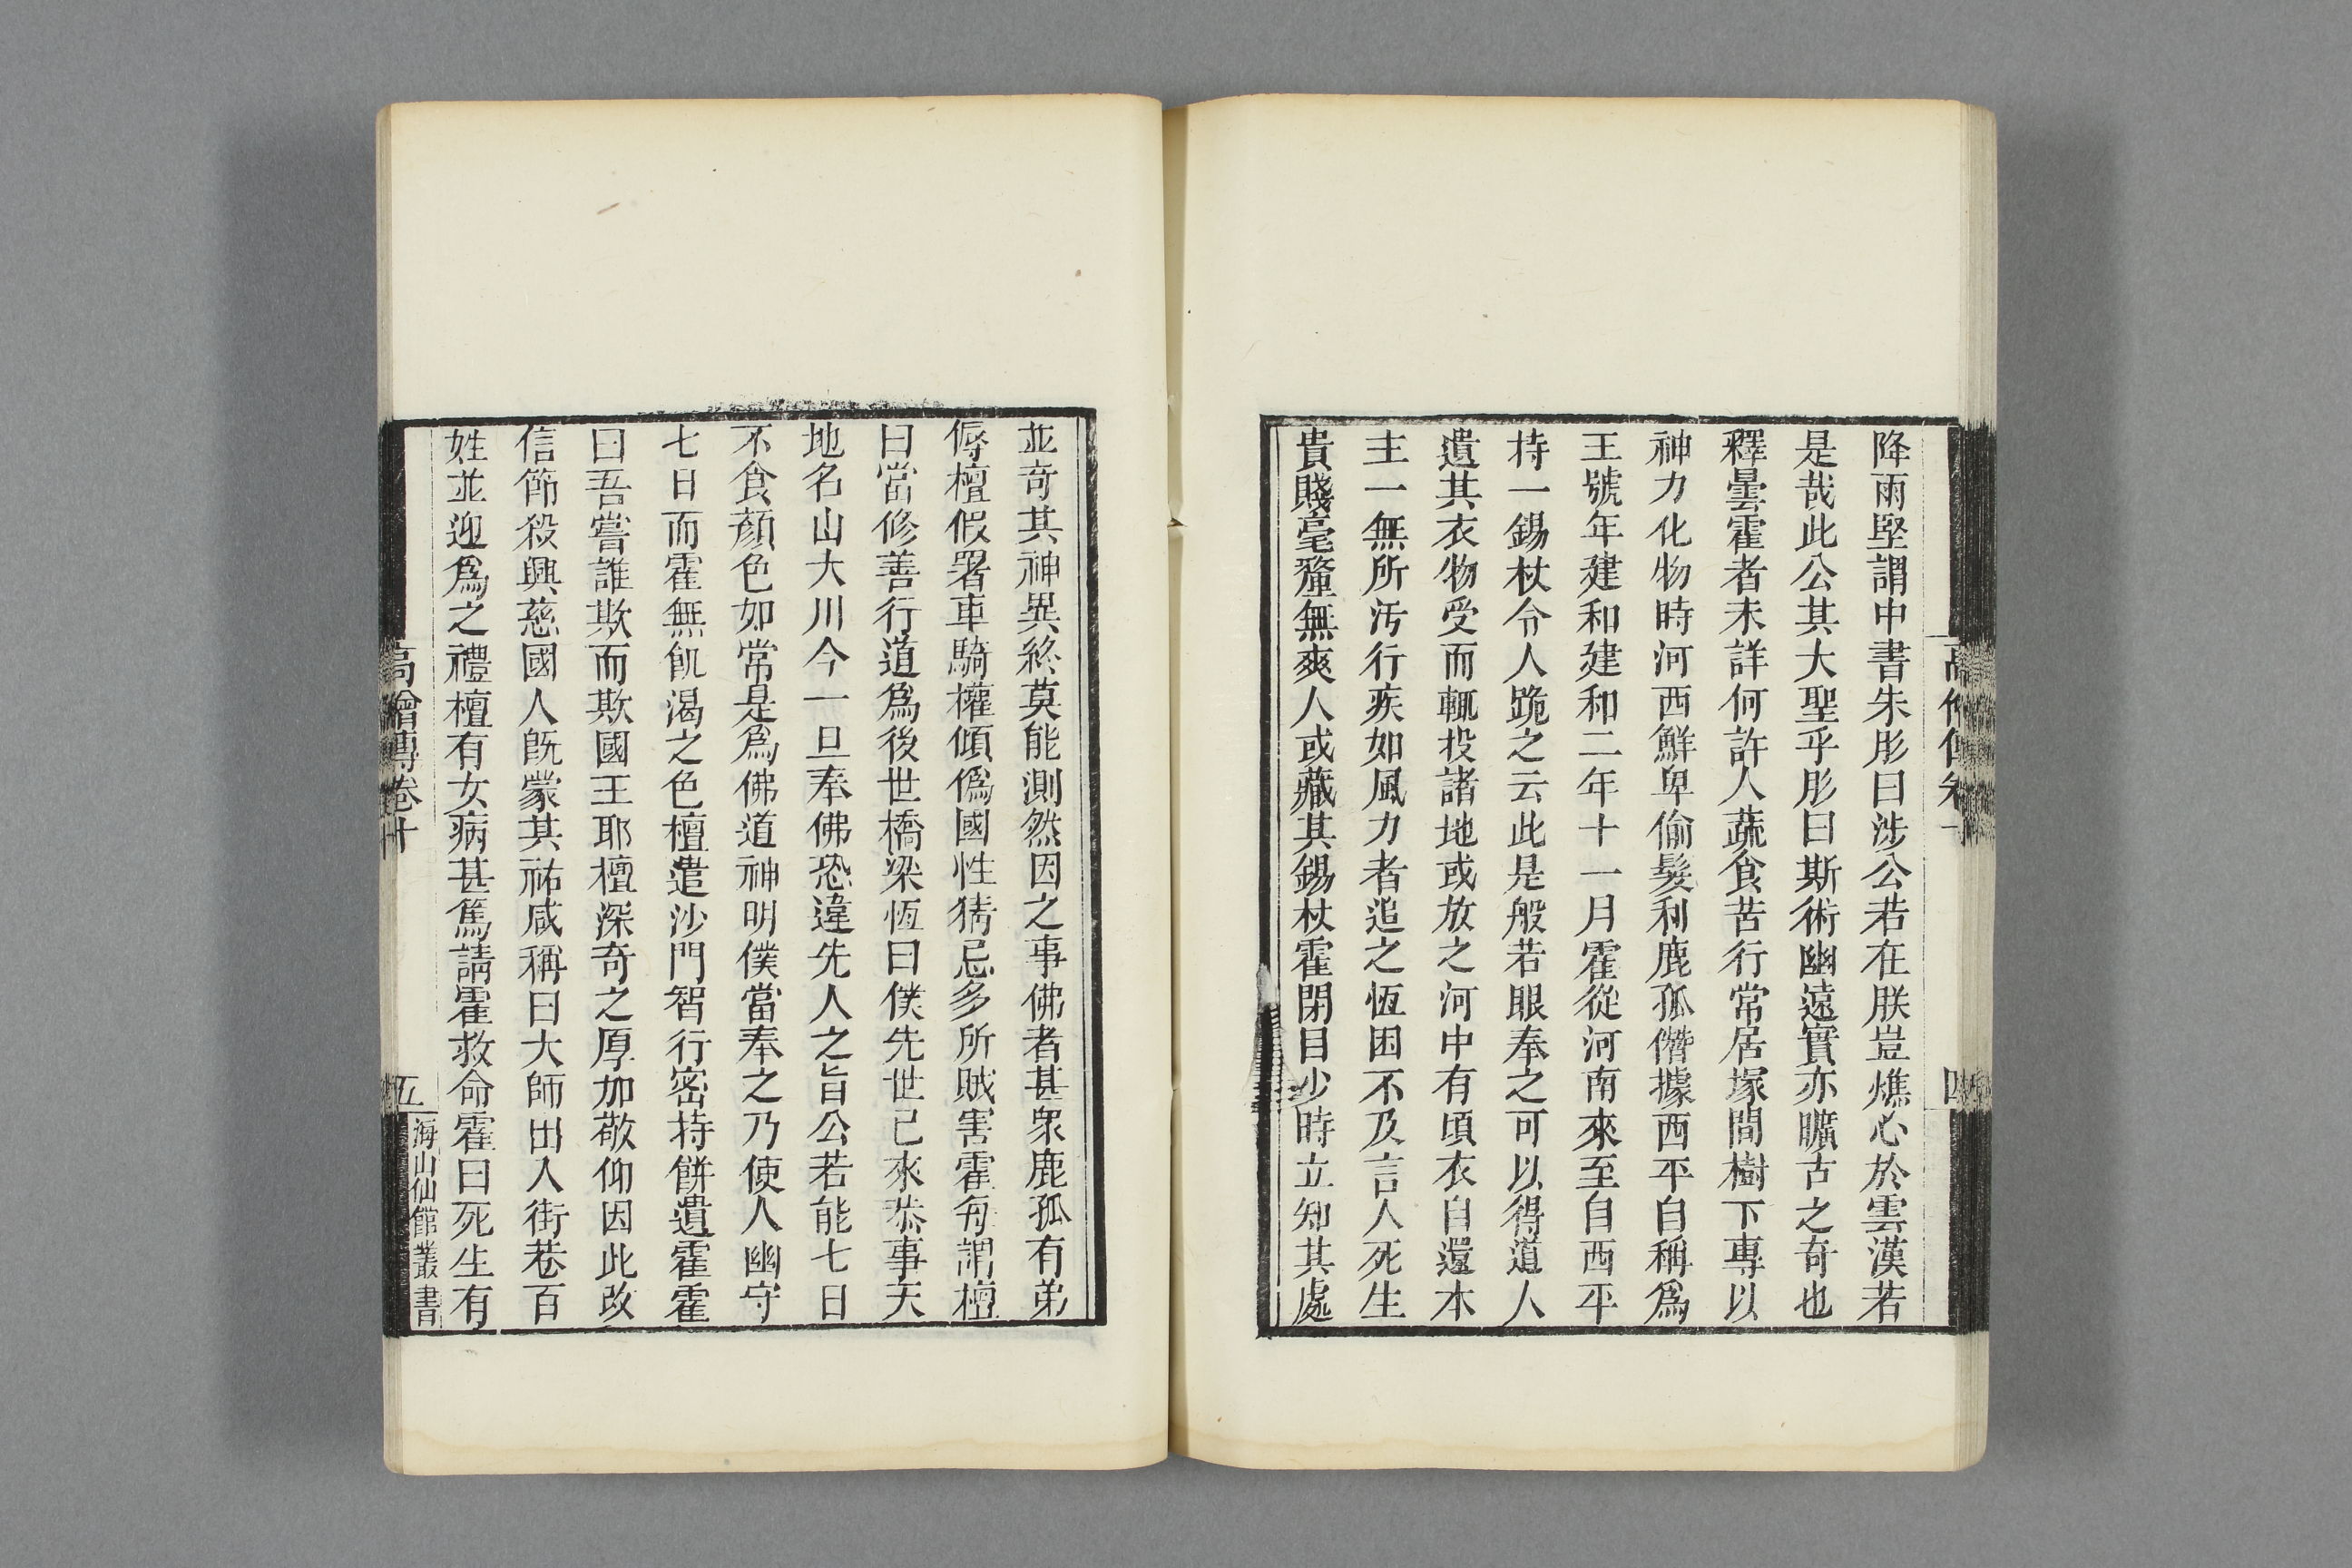 降雨堅謂中書朱肜曰涉公若在朕豈燋心於雲漢若
是哉此公其大聖乎肜曰斯術幽遠實亦曠古之奇也
釋曇霍者未詳何許人蔬食苦行常居塚間樹下專以
神力化物時河西鮮卑偷髮利鹿孤僭據西平自稱爲
王號年建和建和二年十一月霍從河南來至自西平
持一錫杖令人跪之云此是般若眼奉之可以得道人
遺其衣物受而輒投諸地或放之河中有頃衣自還本
主一無所汚行疾如風力者追之恆困不及言人死生
貴賤毫釐無爽人或藏其錫杖霍閉目少時立知其處
並奇其神異終莫能測然因之事佛者甚衆鹿孤有弟
傉檀假署車騎權傾僞國性猜忌多所賊害霍每謂檀
曰當修善行道爲後世橋梁恆曰僕先世已來恭事天
地名山大川今一旦奉佛恐違先人之旨公若能七日
不食顏色如常是爲佛道神明僕當奉之乃使人幽守
七日而霍無飢渴之色檀遣沙門智行密持餅遺霍霍
曰吾嘗誰欺而欺國王耶檀深奇之厚加敬仰因此改
信節殺興慈國人旣蒙其祐咸稱曰大師出入街巷百
姓並迎爲之禮檀有女病甚篤請霍救命霍曰死生有
高僧傳卷十
五
海山仙館叢書